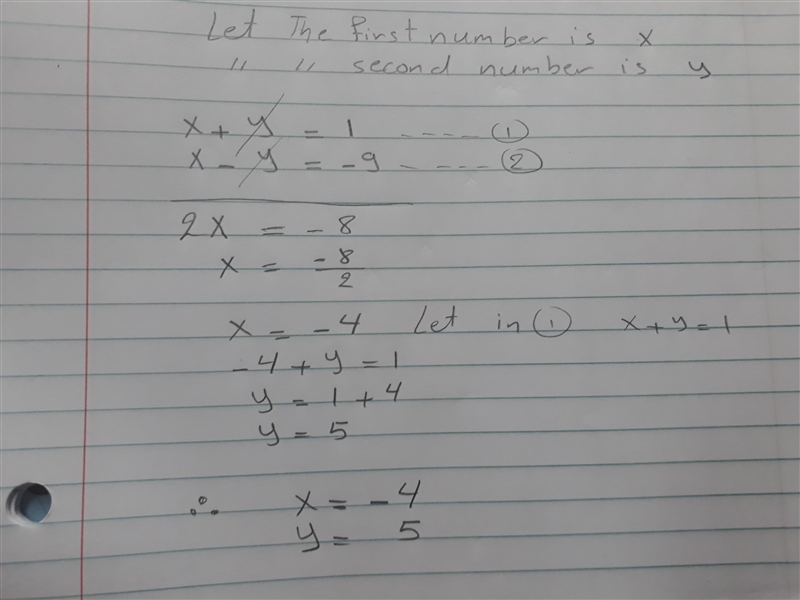 Let The first number is x
" " second number is y
x + y = 1 ----- ①
x - y = -9 ----- ②
2x = -8
x = -8/2
x = -4 Let in ① x+y=1
-4 + y = 1
y = 1 + 4
y = 5
∴ x = -4
y = 5